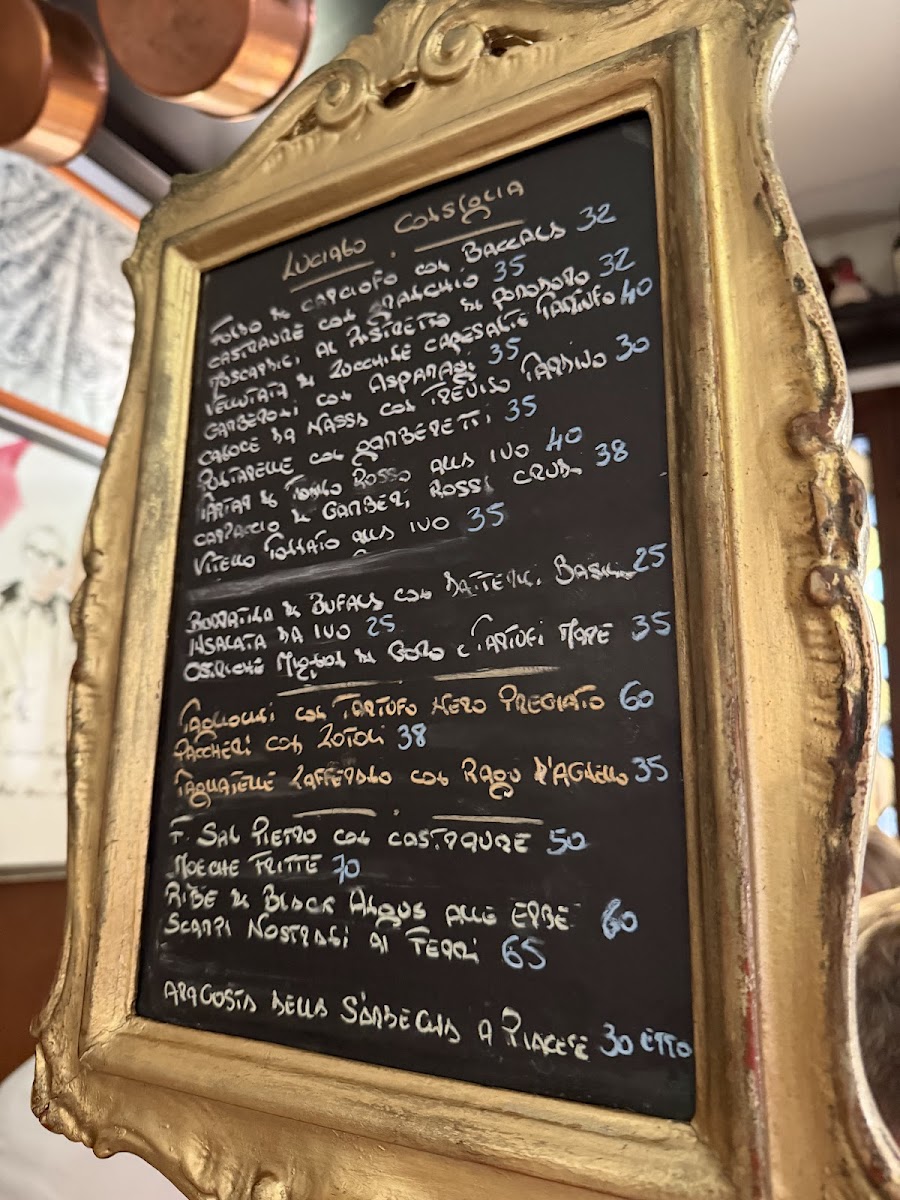 LUCIANO CONSIGLIA
FONDO DI CARCIOFO CON BACCALÀ 32
CASTRAURE CON GRANCHIO 35
MOSCARDINI AL RISTRETTO DI POMODORO 32
VELLUTATA DI ZUCCHINE CAPESANTE TARTUFO 40
GAMBERONI CON ASPARAGI 35
CANOCE DA NASSA CON TREVISO TARDIVO 30
PUNTARELLE CON GAMBERETTI 35
TARTAR DI TONNO ROSSO ALLA IVO 40
CARPACCIO DI GAMBERI ROSSI CRUDI 38
VITELLO TONNATO ALLA IVO 35
BURRATINA DI BUFALA CON DATTERINI BASILICO 25
INSALATA DA IVO 25
OSTRICHE MIGNON DI GORO E TARTUFI MARE 35
TAGLIOLINI CON TARTUFO NERO PREGIATO 60
PACCHERI CON TOTANI 38
TAGLIATELLE ZAFFERANO CON RAGÙ D'AGNELLO 35
F. SAN PIETRO CON CASTRAURE 50
MOECHE FRITTE 70
RIBE DI BLACK ANGUS ALLE ERBE 60
SCAMPI NOSTRANI AI FERRI 65
ARAGOSTA DELLA SARDEGNA A PIACERE 30 ETTO